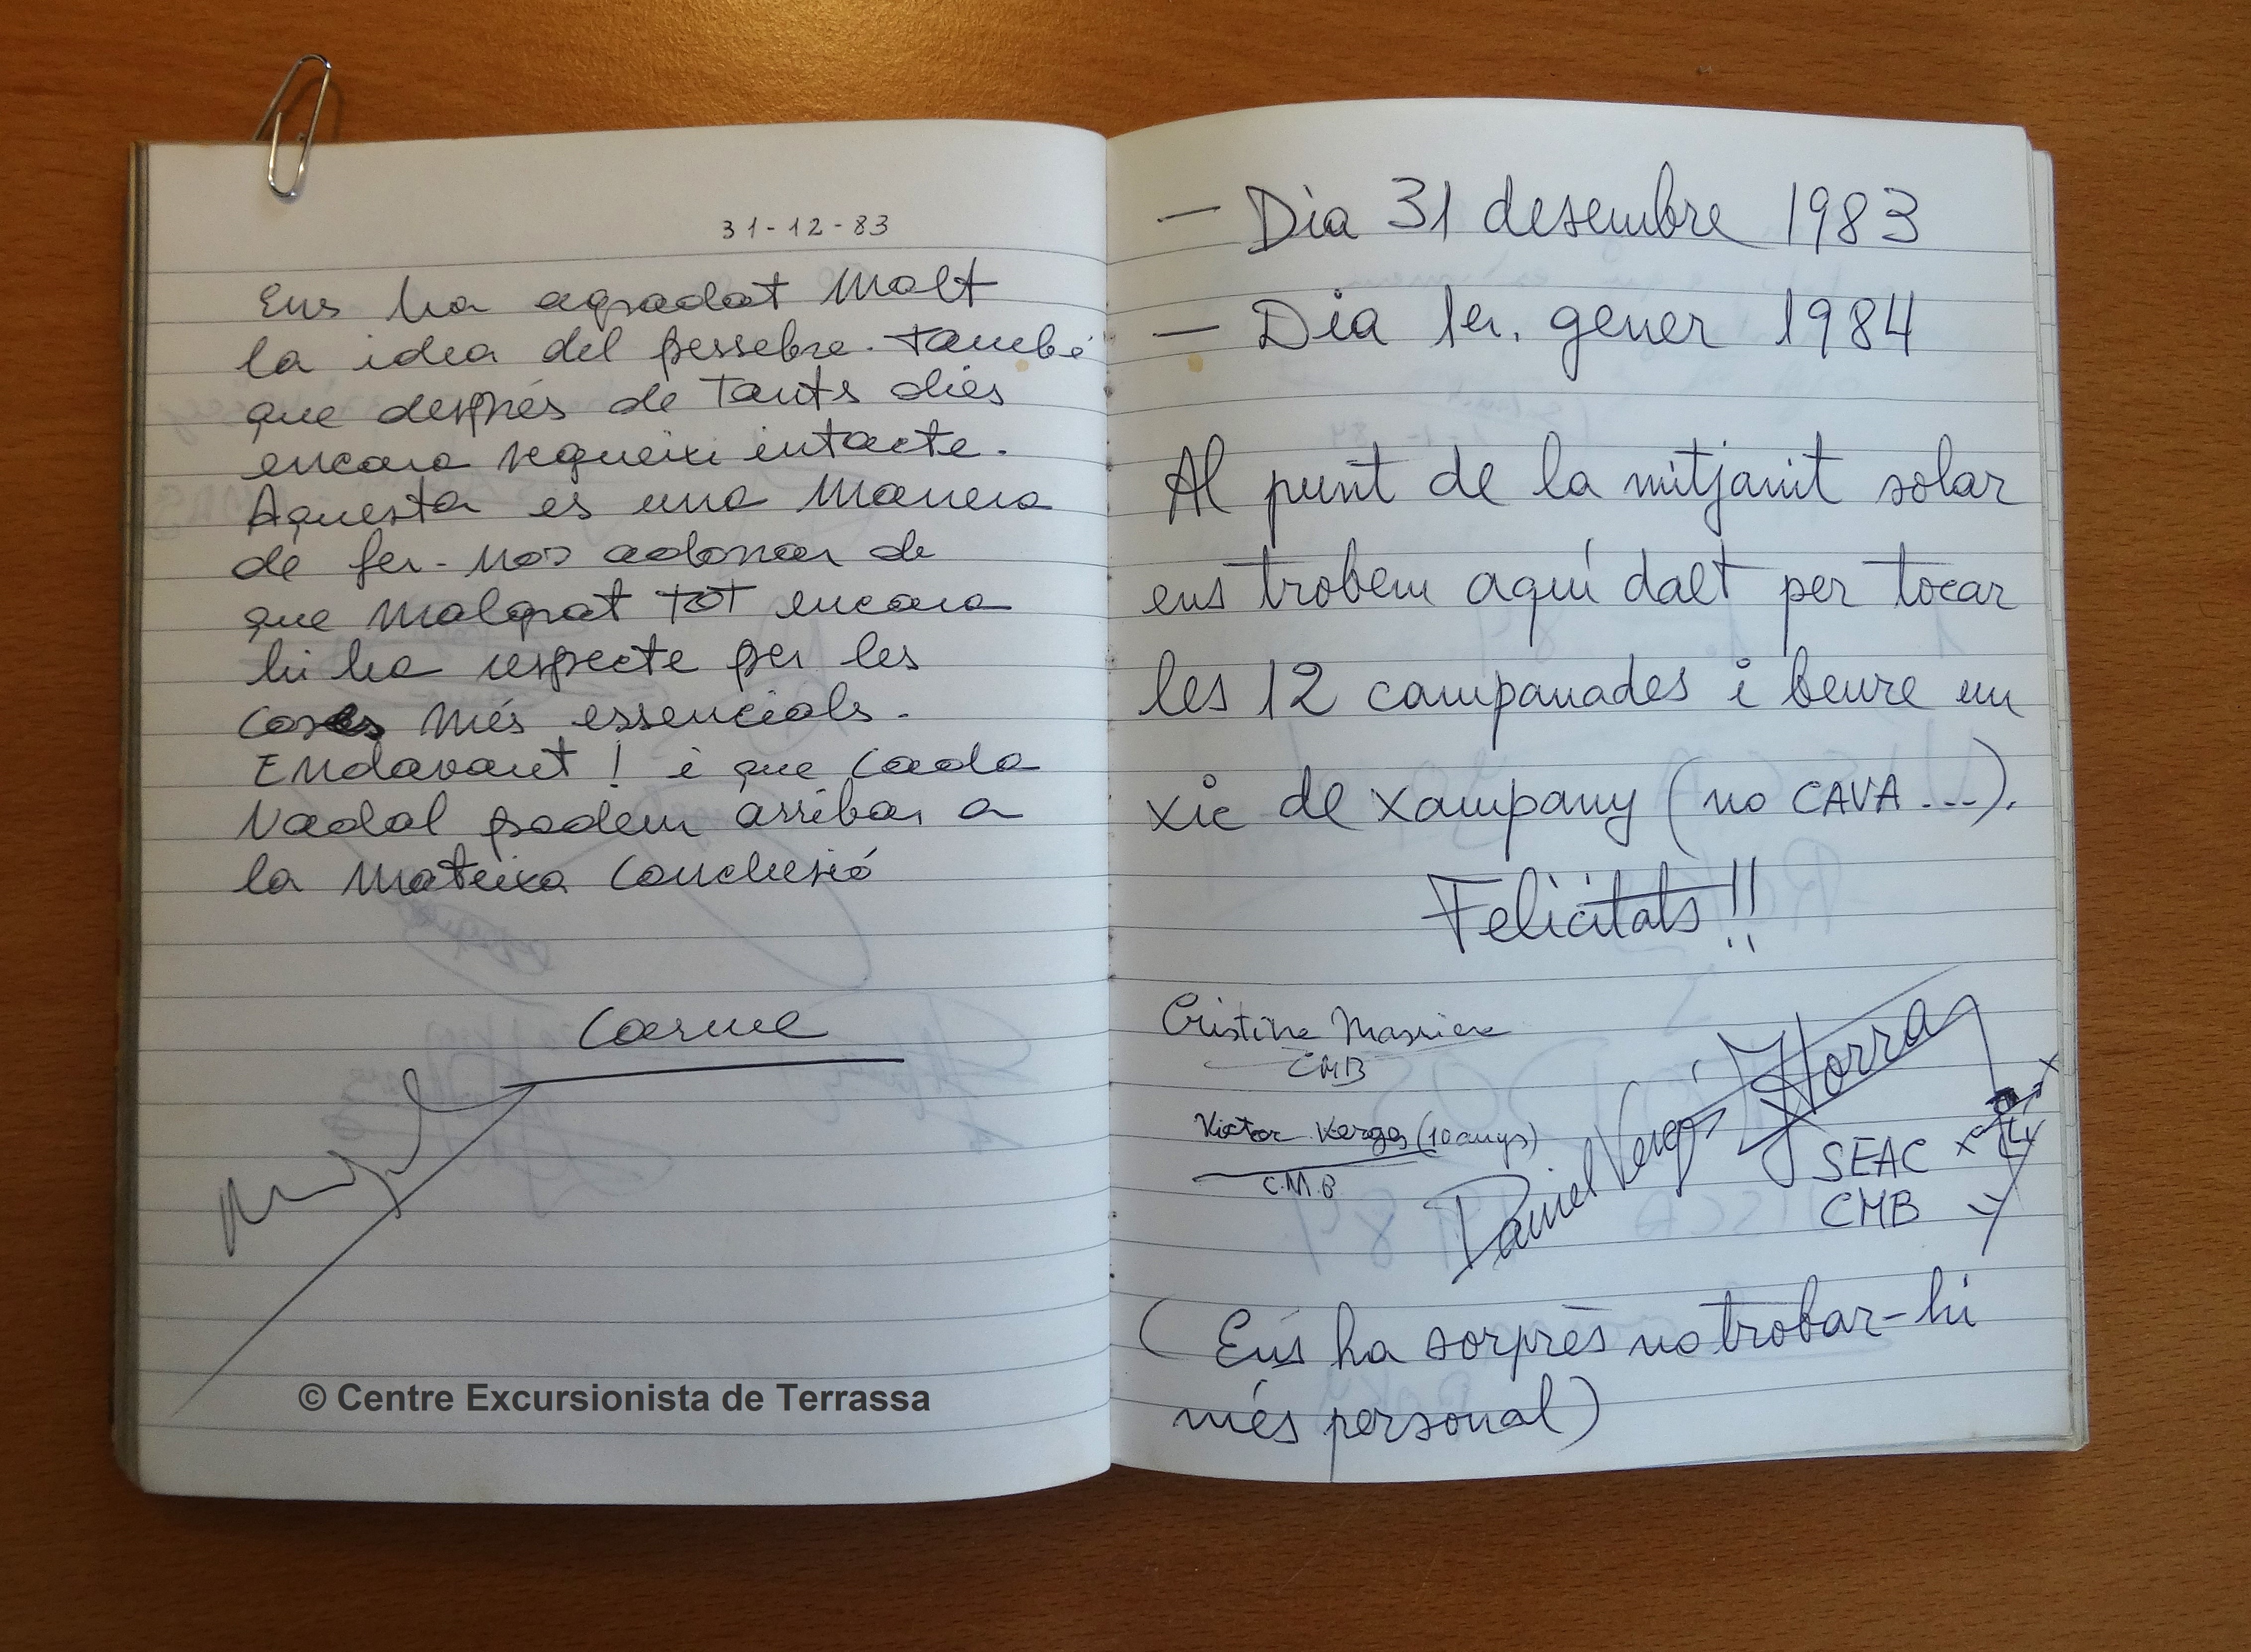 31-12-83
Ens ha agradat molt
la idea del pessebre. També
que després de tants dies
encara segueixi intacte.
Aquesta es una manera
de fer-nos adonar de
que malgrat tot encara
hi ha respecte per les
coses més essencials.
Endavant! i que cada
Nadal podem arribar a
la mateixa conclusió
Carme
© Centre Excursionista de Terrassa
- Dia 31 desembre 1983
- Dia 1er. gener 1984
Al punt de la mitjanit solar
ens trobem aquí dalt per tocar
les 12 campanades i beure un
xic de xampany (no CAVA ...).
Felicitats!!
Cristina Masriera
CMB
Victor Vergés (10 anys)
C.M.B
Daniel Vergés
SEAC
CMB
(Ens ha sorprès no trobar-hi
més personal)